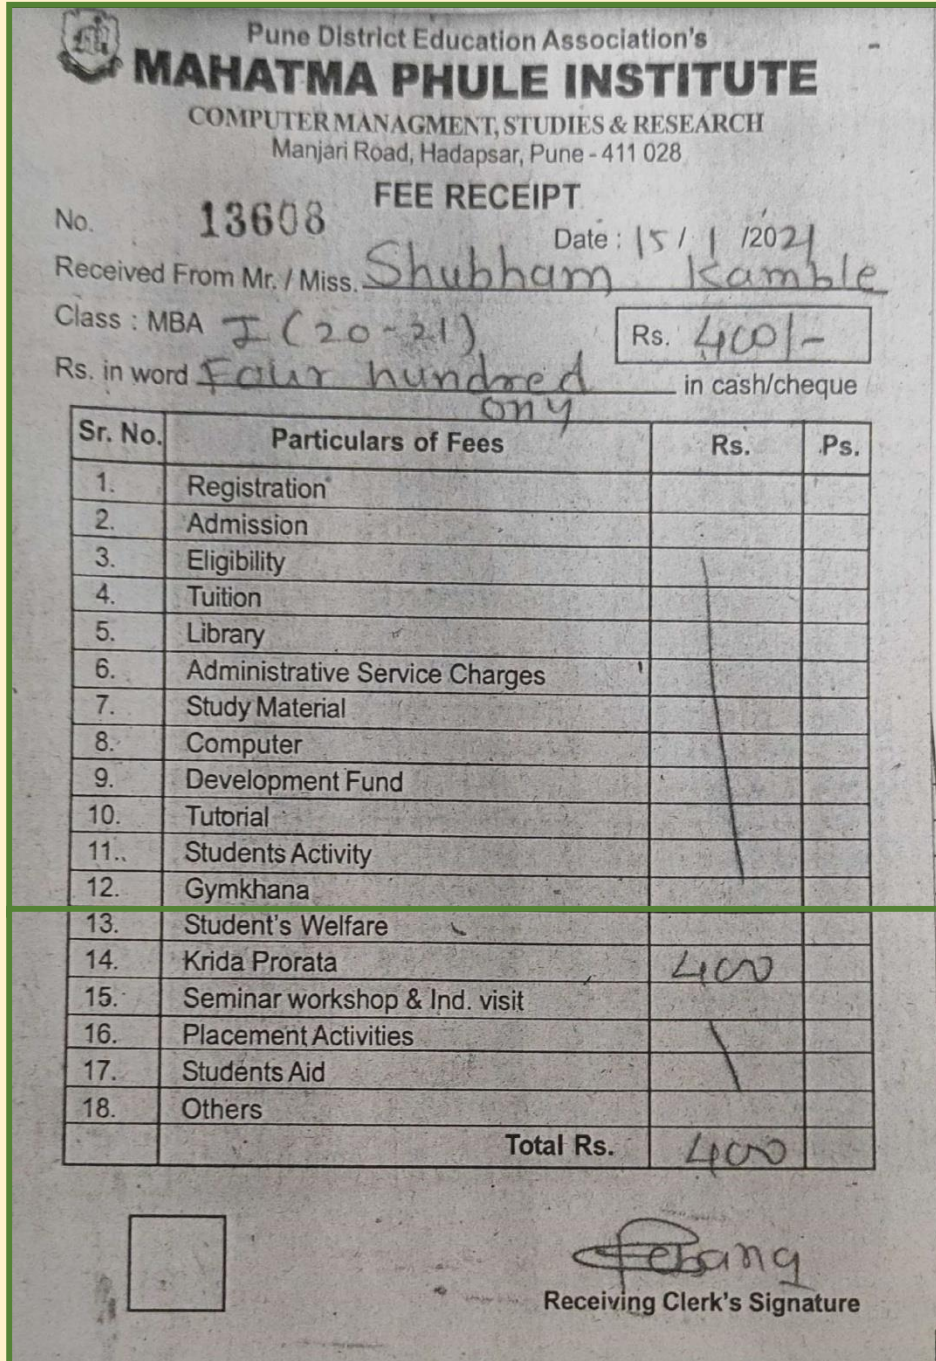 Pune District Education Association's
MAHATMA PHULE INSTITUTE
COMPUTER MANAGMENT, STUDIES & RESEARCH
Manjari Road, Hadapsar, Pune - 411 028
FEE RECEIPT
No. 13608
Date : 15 / 1 /2021
Received From Mr. / Miss. Shubham Kamble
Class : MBA I (20-21) Rs. 400/-
Rs. in word Four hundred in cash/cheque
ony
Sr. No. Particulars of Fees Rs. Ps.
1. Registration
2. Admission
3. Eligibility
4. Tuition
5. Library
6. Administrative Service Charges
7. Study Material
8. Computer
9. Development Fund
10. Tutorial
11. Students Activity
12. Gymkhana
13. Student's Welfare
14. Krida Prorata 400
15. Seminar workshop & Ind. visit
16. Placement Activities
17. Students Aid
18. Others
Total Rs. 400
Receiving Clerk's Signature